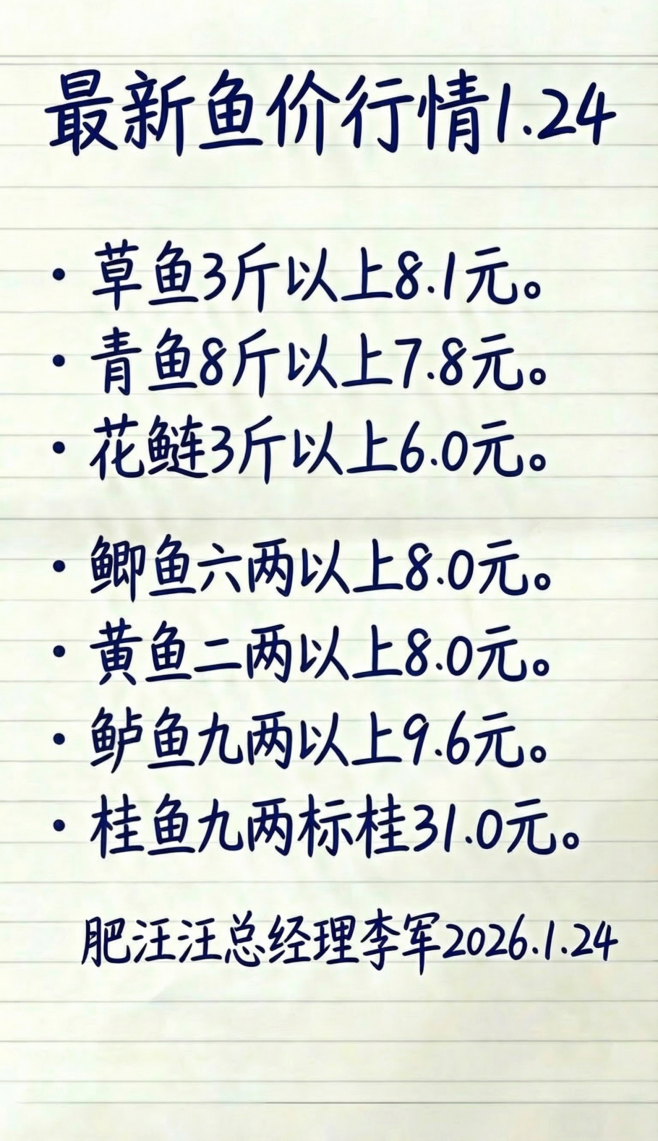 最新鱼价行情1.24
• 草鱼3斤以上8.1元。
• 青鱼8斤以上7.8元。
• 花鲢3斤以上6.0元。
• 鲫鱼六两以上8.0元。
• 黄鱼二两以上8.0元。
• 鲈鱼九两以上9.6元。
• 桂鱼九两标桂31.0元。
肥汪汪总经理李军2026.1.24